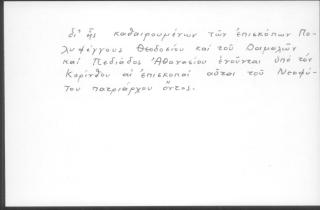 δι' ἧς καθαιρουμένων τῶν ἐπισκόπων Πο-
λυφέγγους Θεοδοσίου καὶ τοῦ Δαμαλῶν
καὶ Πεδιάδος Ἀθανασίου ἑνοῦνται ὑπὸ τὸν
Κορίνθου αἱ ἐπισκοπαὶ αὗται τοῦ Νεοφύ-
του πατριάρχου ὄντος.